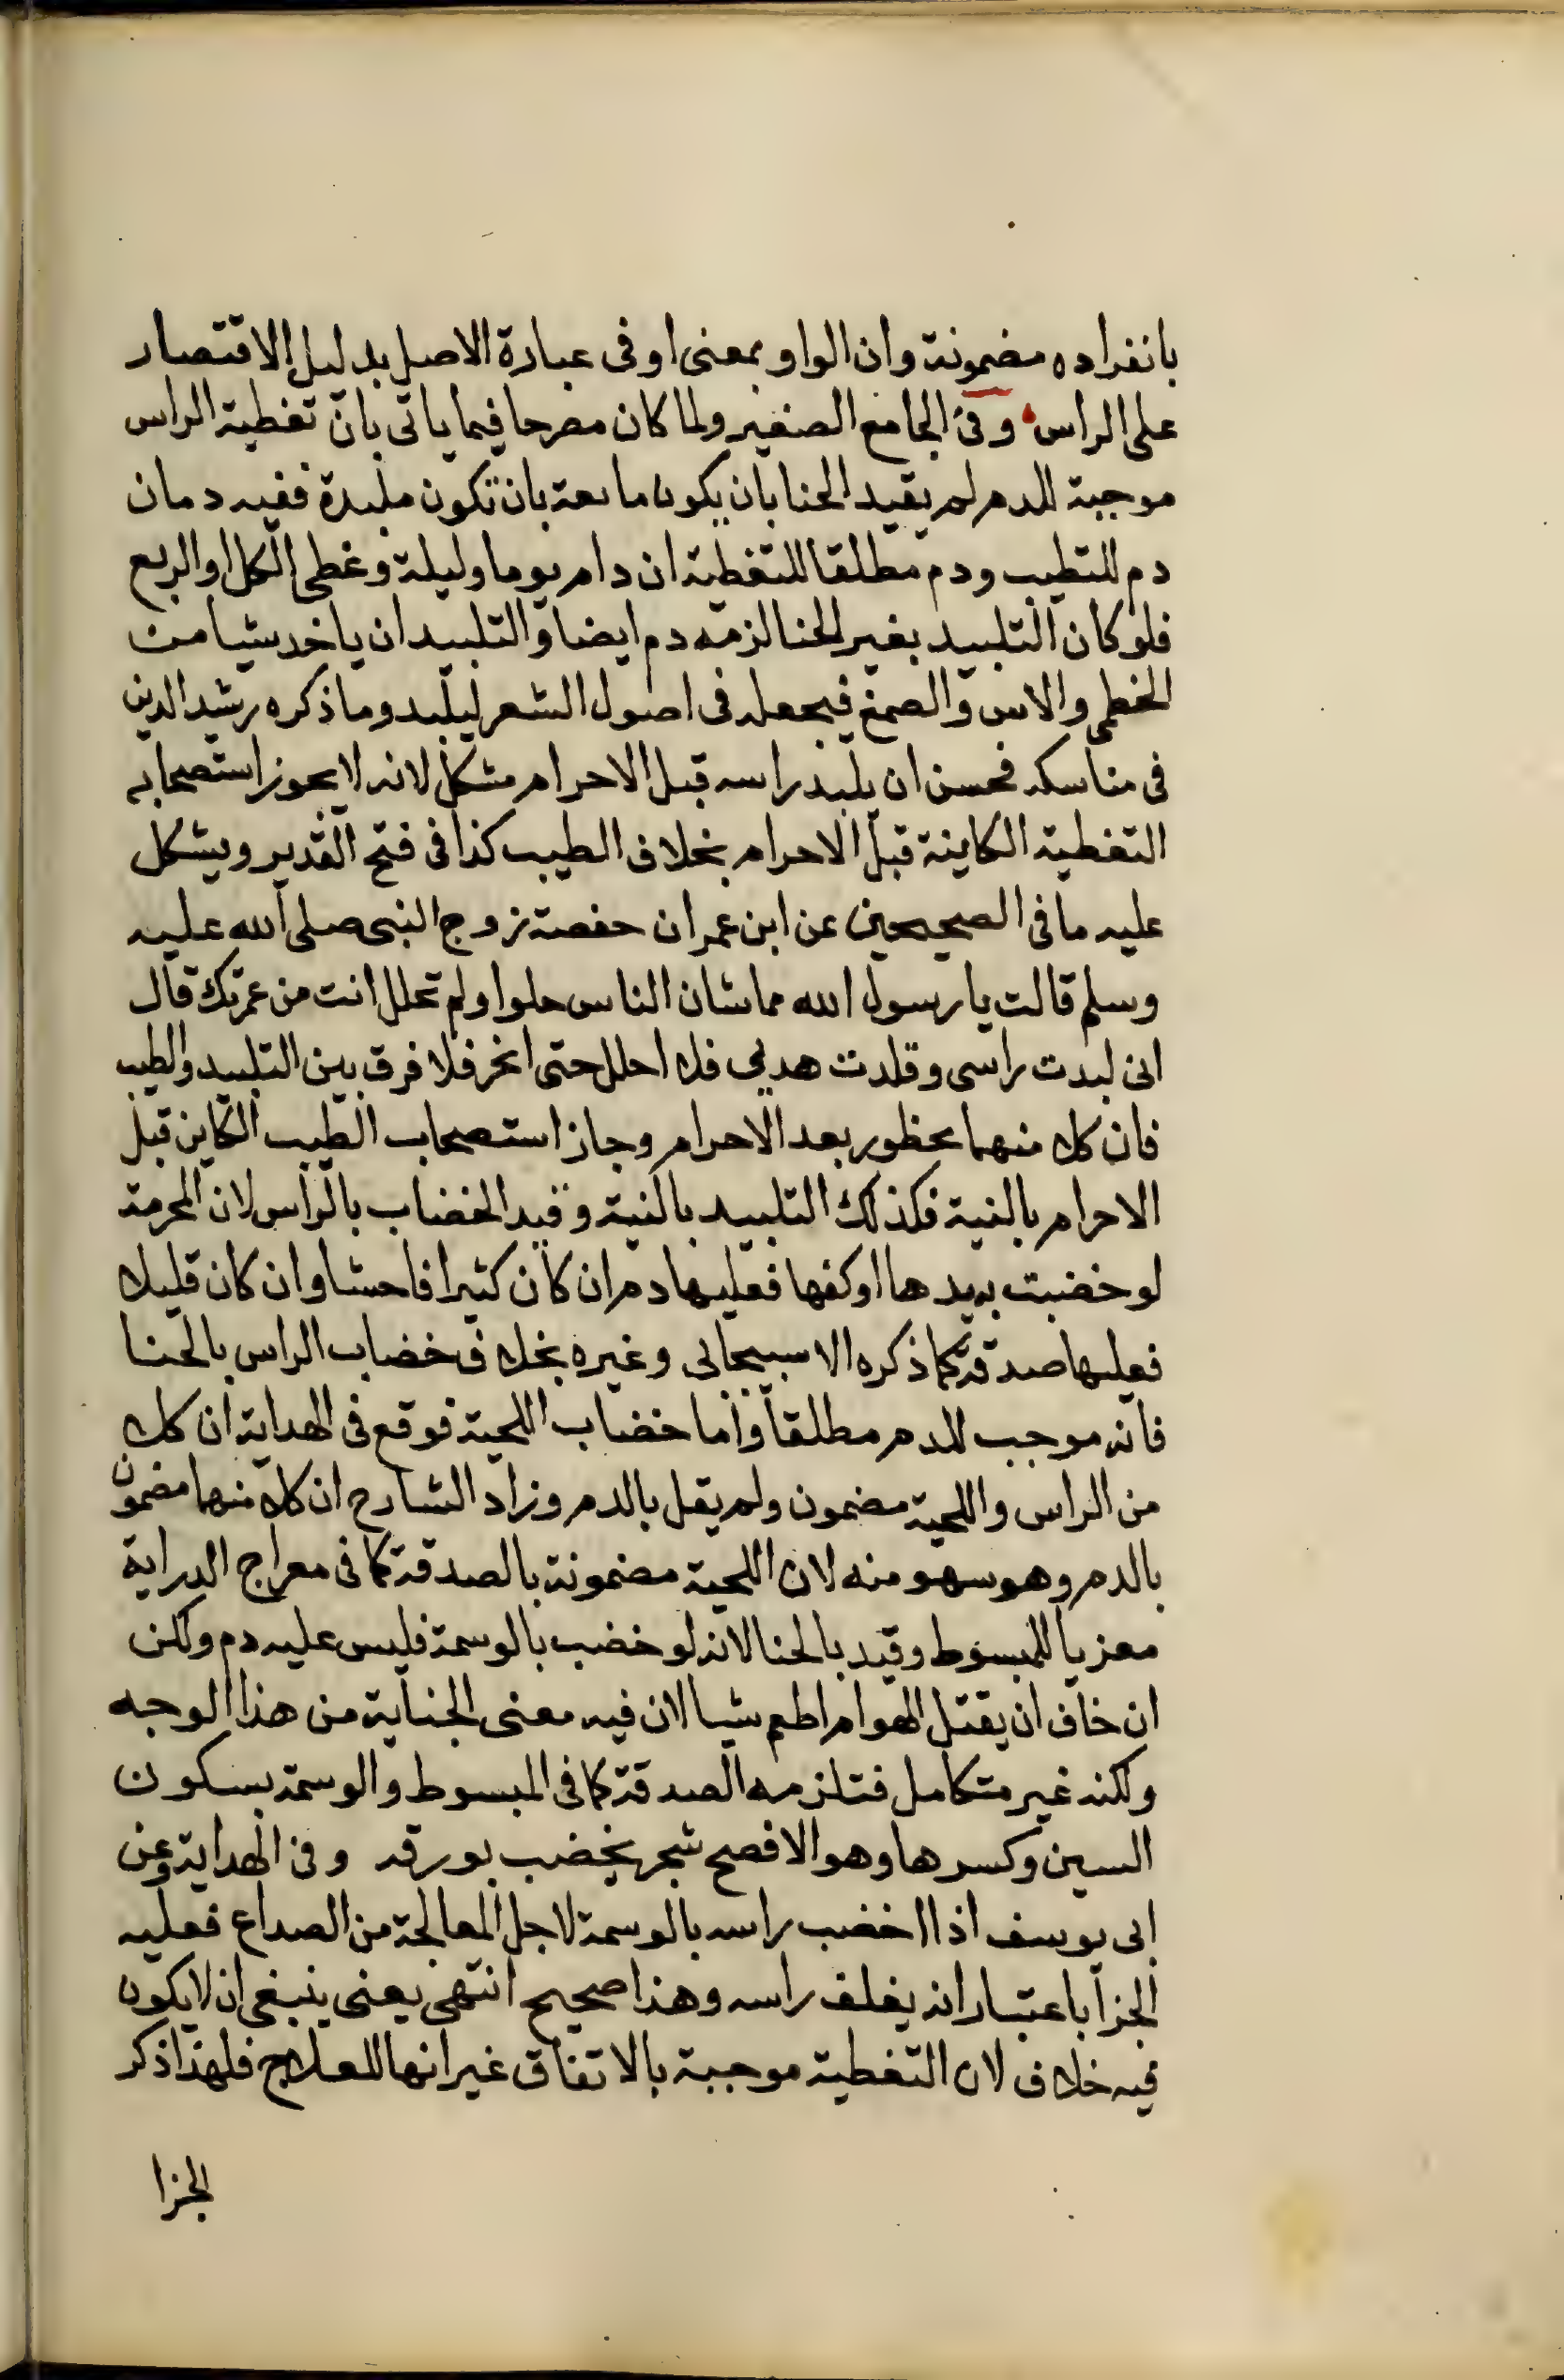 بانفراده مضمونة وان الواو بمعنى او فى عبارة الاصل بدليل الاقتصار
على الراس وفى الجامع الصغير ولما كان مصرحا فيما ياتى بان تغطية الراس
موجبة للدم لم يقيد الحنا بان يكون مايعة بان تكون ملبدة ففيه دمان
دم للتطيب ودم مطلقا للتغطية ان دام يوما وليلة وغطى الكل او الربع
فلو كان التلبيد بغير الحنا لزمه دم ايضا والتلبيد ان ياخد شيا من
الخطمى والاس والصمغ فيجعله فى اصول الشعر ليلبد وما ذكره رشد الدين
فى مناسكه فحسن ان يلبد راسه قبل الاحرام مشكل لانه لا يجوز استصحابه
التغطية الكاينة قبل الاحرام بخلاف الطيب كذا فى فتح القدير ويشكل
عليه ما فى الصحيحين عن ابن عمر ان حفصة زوج النبى صلى الله عليه
وسلم قالت يا رسول الله ما شان الناس حلوا ولم تحلل انت من عمرتك قال
انى لبدت راسى وقلدت هديى فلا احلل حتى انحر فلا فرق بين التلبيد والطيب
فان كلا منهما محظور بعد الاحرام وجاز استصحاب الطيب الكاين قبل
الاحرام بالنية فكذلك التلبيد بالنية وقيد الخضاب بالراس لان المحرمة
لو خضبت يديها او كفها فعليها دم ان كان كثيرا فاحشا وان كان قليلا
فعليها صدقة كما ذكره الاسبيجابى وغيره بخلاف خضاب الراس بالحنا
فانه موجب للدم مطلقا واما خضاب اللحية فوقع فى الهداية ان كلا
من الراس واللحية مضمون ولم يقل بالدم وزاد الشارح ان كلا منهما مضمون
بالدم وهو سهو منه لان اللحية مضمونة بالصدقة كما فى معراج الدراية
معزيا للمبسوط وقيد بالحنا لانه لو خضب بالوسمة فليس عليه دم ولكن
ان خاف ان يقتل الهوام اطعم شيا لان فيه معنى الجناية من هذا الوجه
ولكنه غير متكامل فتلزمه الصدقة كما فى المبسوط والوسمة بسكون
السين وكسرها وهو الافصح شجر يخضب بورقه وفى الهداية وعن
ابى يوسف اذا اخضب راسه بالوسمة لاجل المعالجة من الصداع فعليه
الجزا باعتبار انه يغلف راسه وهذا صحيح انتهى يعنى ينبغى ان لا يكون
فيه خلاف لان التغطية موجبة بالاتفاق غير انها للعلاج فلهذا ذكر
الجزا